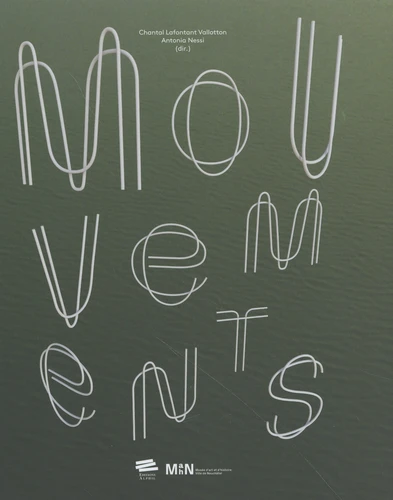 Chantal Lafontant Vallotton
Antonia Nessi
(dir.)
Mou
vem
ents
Editions
Alphil
MahN
Musée d'art et d'histoire
Ville de Neuchâtel